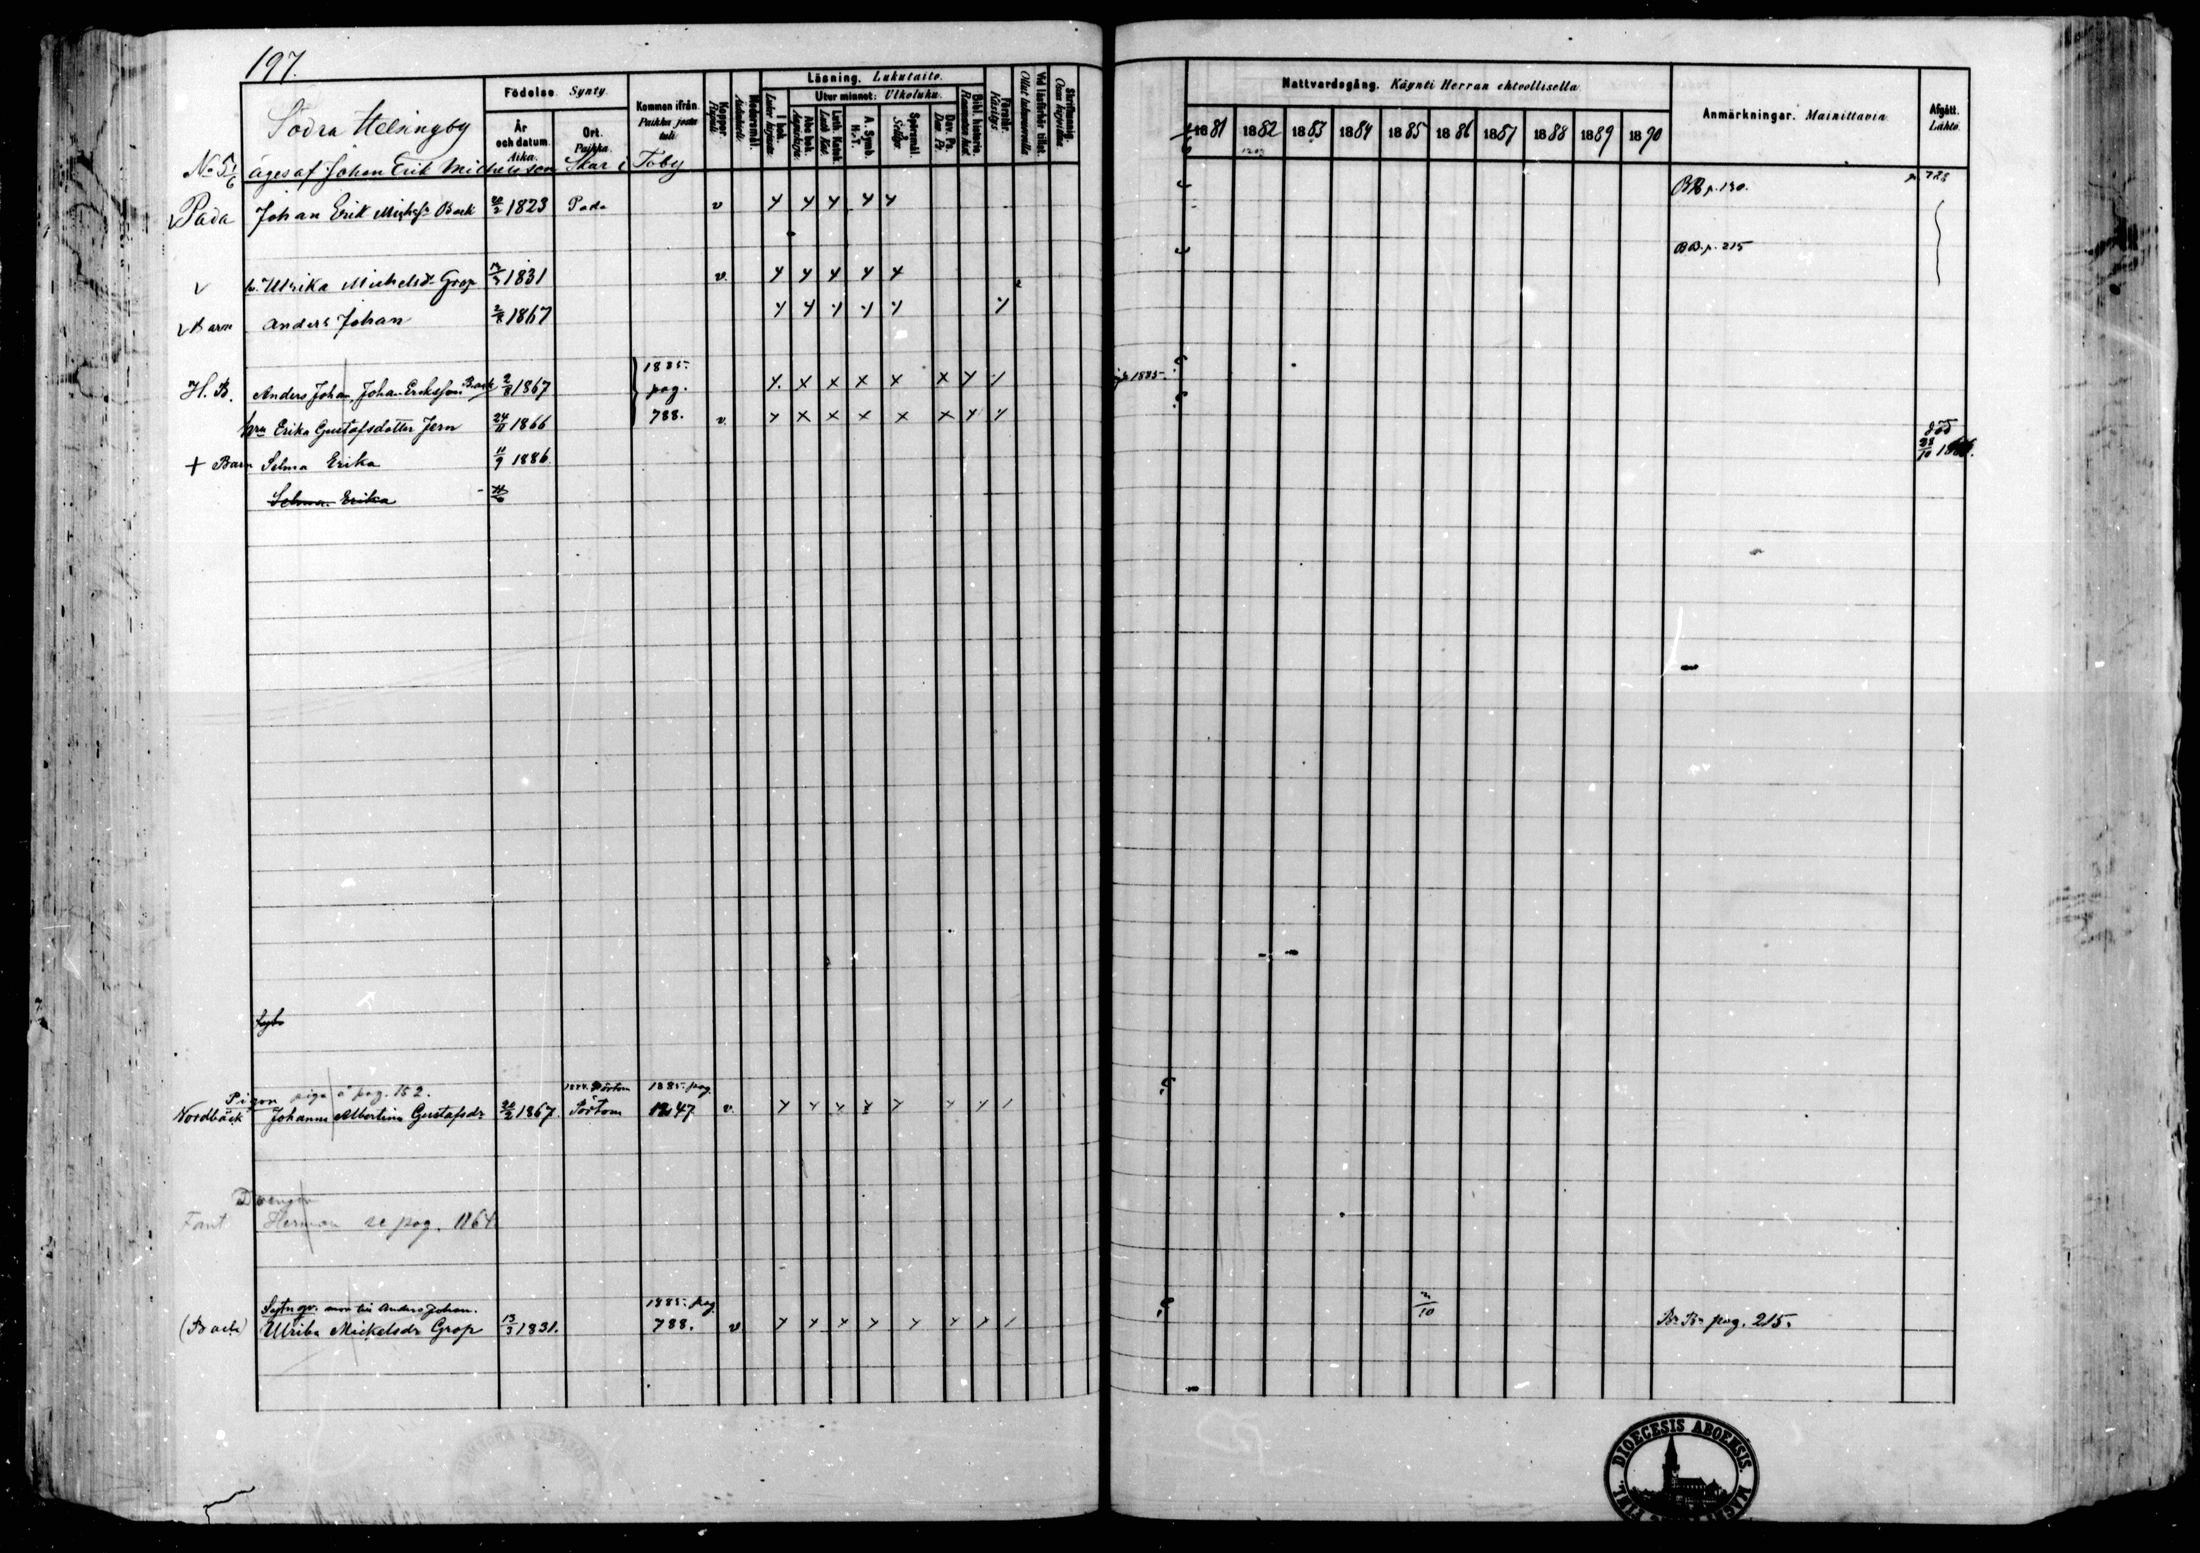 197.
Födelse. Synty.
Kommen ifrån. Paikka josta tuli.
Koppor. Rupuli.
Läsning. Lukutaito.
Utur minnet: Ulkoluku.
Nattvardsgång. Käynti Herran ehtoollisella.
Anmärkningar. Mainittavia.
Afgått. Lähtö.
År och datum. Aika.
Ort. Paikka.
I bok.
Abc bok.
Luth. Katek.
A. Symb.
Spörsmål.
Dav. Ps.
Bibl. historie.
Försvar. Käsitys.
1881 1882 1883 1884 1885 1886 1887 1888 1889 1890
Södra Helsingby
No 5 1/6 äges af Johan Erik Michelsson Skar i Toby
Pada Johan Erik Michelss Back 20/2 1823 Pada v BB p. 130. p. 788
h. Ulrika Michelsdr Grop 13/3 1831 v. BB. p. 215
Barn Anders Johan 2/8 1867
H. B. Anders Johan Johan Eriksson Back 2/8 1867 1885. pag. 788. 1885.
hru Erika Gustafsdotter Jern 24/11 1866 v.
+ Barn Selma Erika 11/9 1886. död 28/10
Selma Erika
Pigon piga å pag. 152. 1885. pag.
Nordbäck Johanna Albertina Gustafsdr 20/2 1867 Pörtom 1247 v.
Drengen
Fant Herman se pag. 1864
Sytngr. mor till Anders Johan. 1885. pag.
(Back) Ulrika Mickelsdr Grop 13/3 1831. 788. v B. B. pag. 215.
DIOECESIS ABOENSIS.